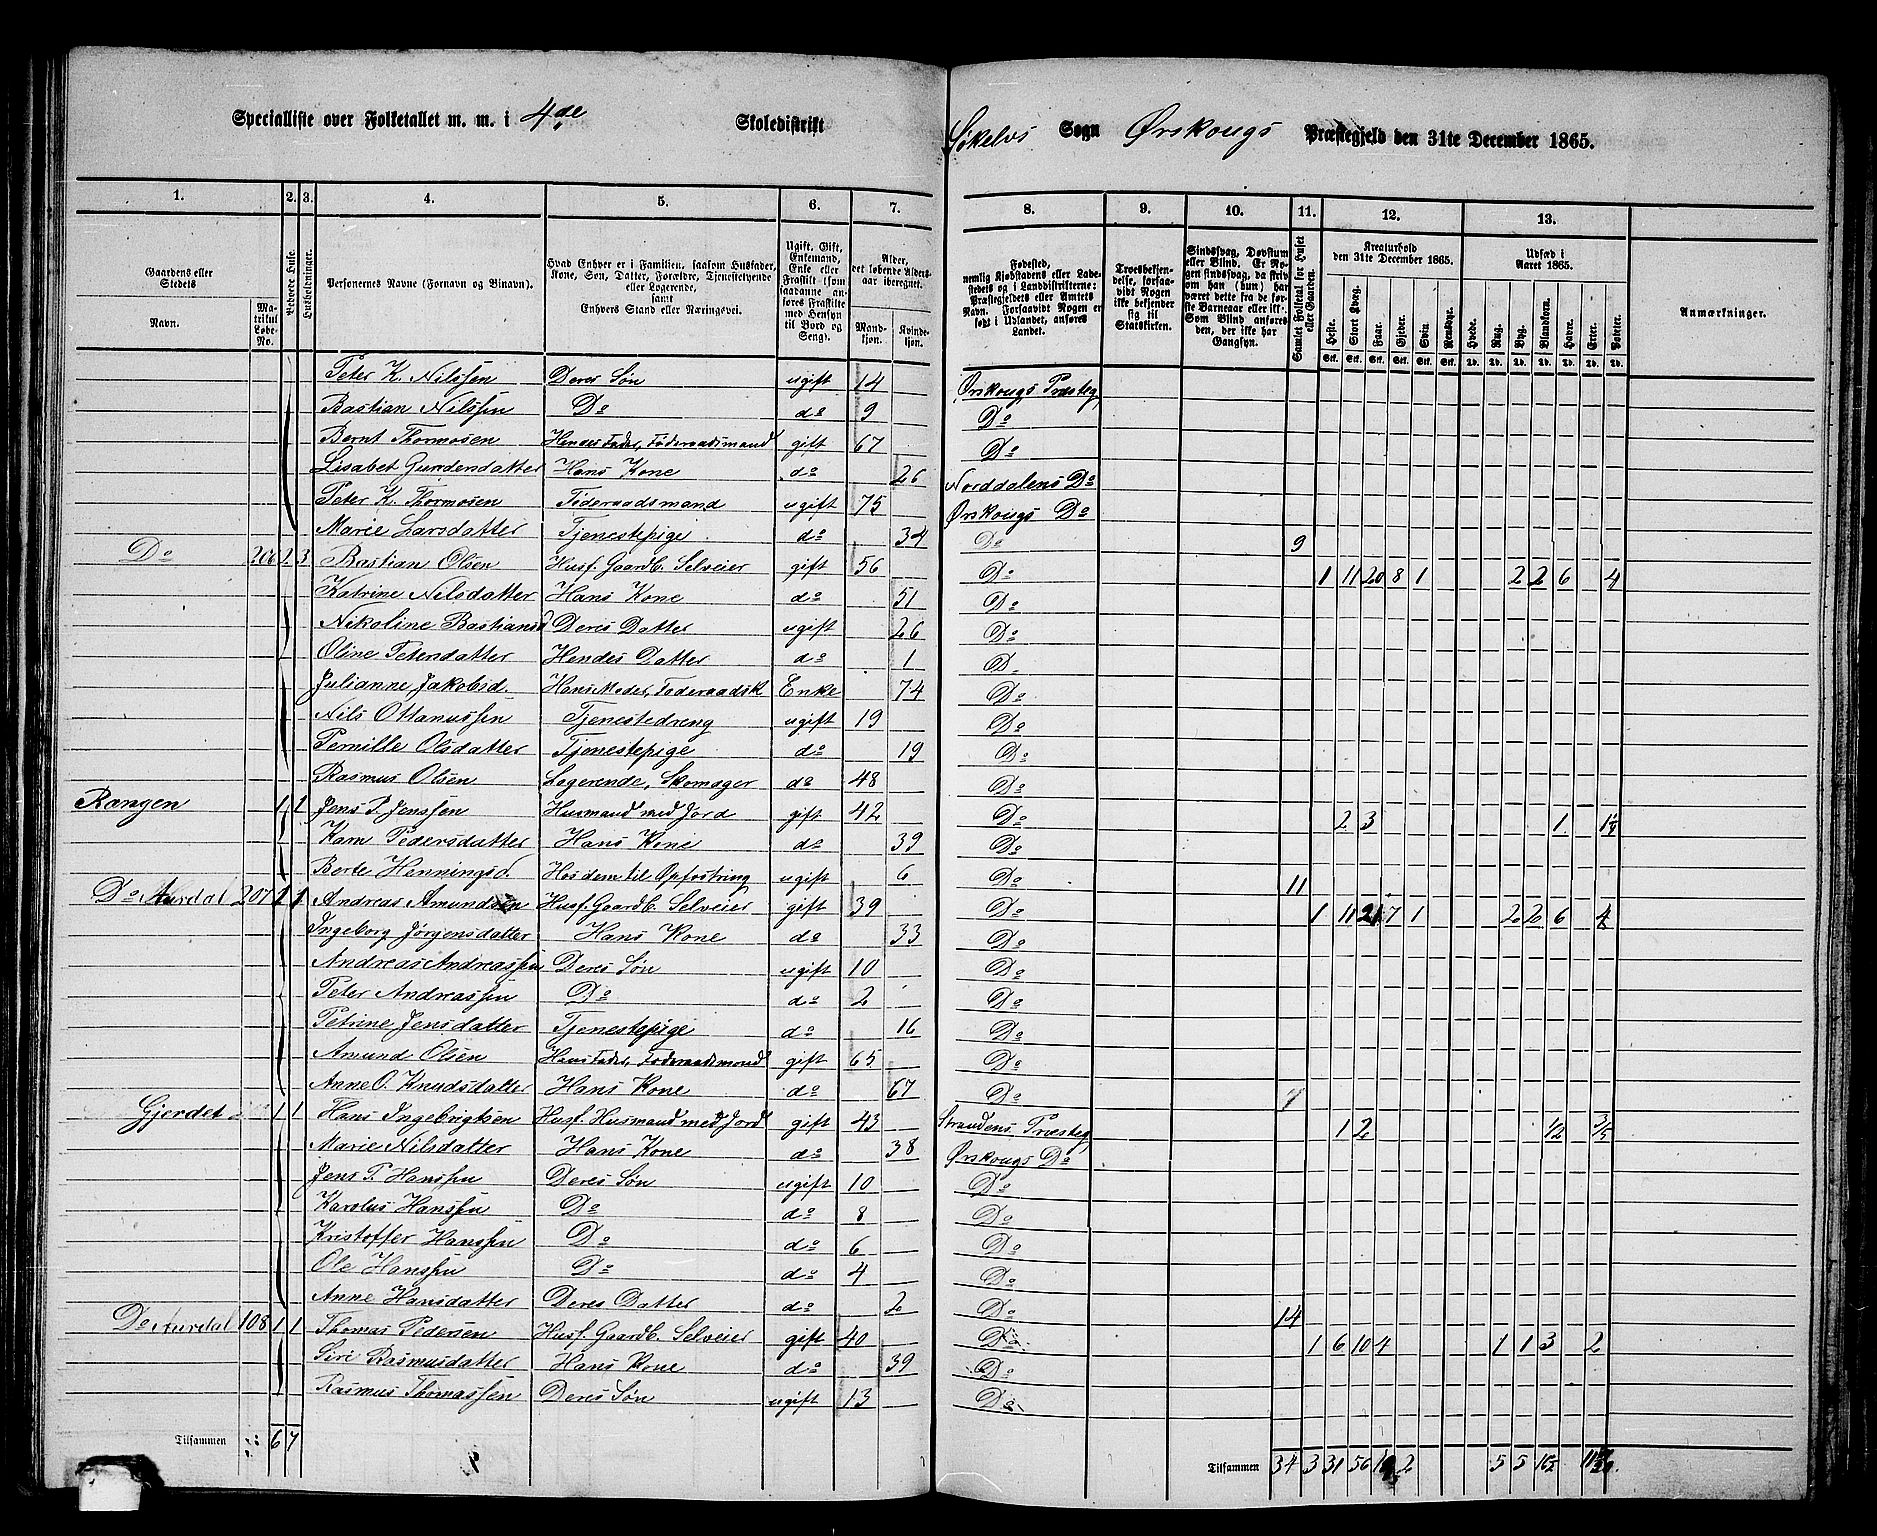 Specialliste over Folketallet m. m. i 4de Skoledistrikt Søkelvs Sogn Ørskougs Præstegjeld den 31te December 1865.
1. 2. 3. 4. 5. 6. 7. 8. 9. 10. 11. 12. 13.
Gaardens eller Stedets Navn. Matrikul Løbe-No. Beboede Huse. Husholdninger. Personernes Navne (Fornavn og Binavn). Hvad Enhver er i Familien, saasom Husfader, Kone, Søn, Datter, Forældre, Tjenestetyende eller Logerende, samt Enhvers Stand eller Næringsvei. Ugift, Gift, Enkemand, Enke eller Fraskilt (som saadanne anføres Fraskilte med Hensyn til Bord og Seng). Alder, det løbende Aldersaar iberegnet. Mandkjøn. Kvindekjøn. Fødested, nemlig Kjøbstadens eller Ladestedets eller i Landdistrikterne: Præstegjeldets eller Amtets Navn. Forsaavidt Nogen er født i Udlandet, anføres Landet. Troesbekjendelse, forsaavidt Nogen ikke bekjender sig til Statskirken. Sindssvag, Døvstum eller Blind. Er Nogen sindssvag, da skriv om han (hun) har været dette fra de første Barneaar eller ikke. Som Blind anføres den, der ikke har Gangsyn. Samlet Folketal for Huset eller Gaarden. Kreaturhold den 31te December 1865. Heste. Stort Kvæg. Faar. Gjeder. Svin. Rensdyr. Udsæd i Aaret 1865. Hvede. Rug. Byg. Blandkorn. Havre. Erter. Poteter. Anmærkninger.
Peter K. Nilssen Deres Søn ugift 14 Ørskougs Præsteg
Bastian Nilssen Do do 9 Do
Bernt Thormosen Hendes Fader, Føderaadsmand gift 67 Do
Lisabet Gundersdatter Hans Kone do 26 Norddalens Do
Peter K. Thormosen Føderaadsmand ugift 75 Ørskougs Do
Marie Larsdatter Tjenestepige do 34 Do 9
Do 206 1 3 Bastian Olsen Husf. Gaardb. Selveier gift 56 Do 1 11 20 8 1 2 2 6 4
Katrine Nilsdatter Hans Kone do 51 Do
Nikoline Bastiansd Deres Datter ugift 26 Do
Oline Petersdatter Hendes Datter do 1 Do
Julianne Jakobsd. Hans Moder, Føderaadsk Enke 74 Do
Nils Ottanussen Tjenestedreng ugift 19 Do
Pernille Olsdatter Tjenestepige do 19 Do
Rasmus Olsen Logerende, Skomager do 48 Do
Rangen 1 1 Jens P. Jenssen Husmand med Jord gift 42 Do 2 3 1
Karn Pedersdatter Hans Kone do 39 Do
Berte Henningsd. Hos dem til Opfostring ugift 6 Do 11
Do Aurdal 207 1 1 Andreas Amundsen Husf. Gaardb. Selveier gift 39 Do 1 11 21 7 1 2 2 6 4
Ingeborg Jørgensdatter Hans Kone do 33 Do
Andreas Andreassen Deres Søn ugift 10 Do
Peter Andreassen Do do 2 Do
Petrine Jensdatter Tjenestepige do 16 Do
Amund Olsen Hans Fader, Føderaadsmand gift 65 Do
Anne O. Knudsdatter Hans Kone do 67 Do 7
Gjerdet 1 1 Hans Ingebrigtsen Husf. Husmand med Jord gift 43 Strandens Præsteg 1 2 1/2 3/5
Marie Nilsdatter Hans Kone do 38 Ørskougs Do
Jens P. Hanssen Deres Søn ugift 10 Do
Karolus Hanssen Do do 8 Do
Kristoffer Hanssen Do do 6 Do
Ole Hanssen Do do 4 Do
Anne Hansdatter Deres Datter do 2 Do 14
Do Aurdal 108 1 1 Thomas Pedersen Husf. Gaardb. Selveier gift 40 Do 1 6 10 4 1 1 3 2
Siri Rasmusdatter Hans Kone do 39 Do
Rasmus Thomassen Deres Søn ugift 13 Do
Tilsammen 6 7 Tilsammen 34 3 31 56 2 5 5